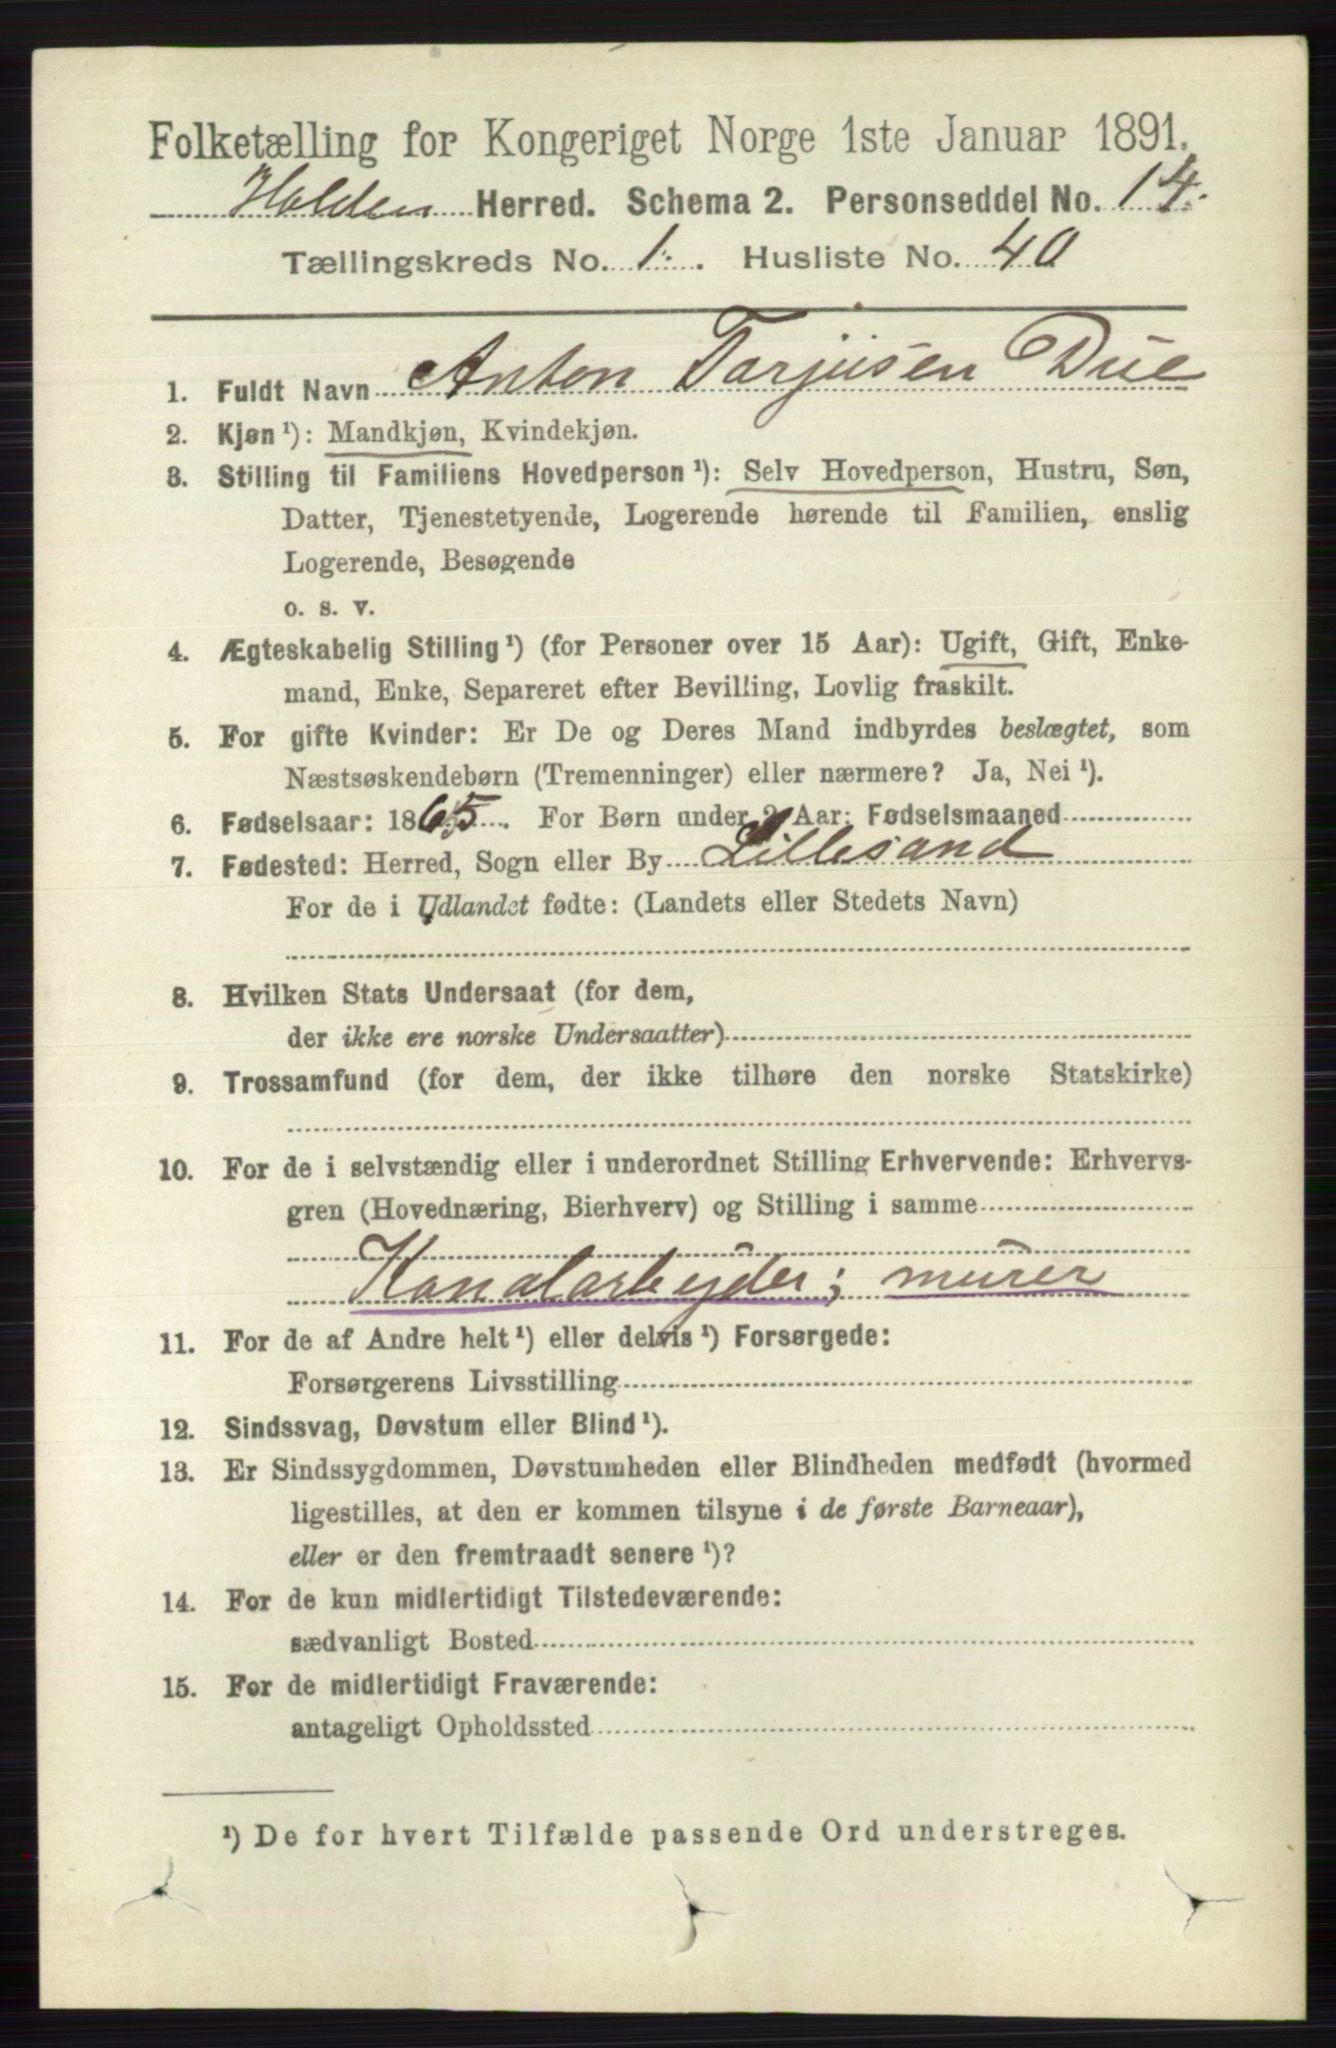 Folketælling for Kongeriget Norge 1ste Januar 1891.
Holden Herred. Schema 2. Personseddel No. 14.
Tællingskreds No. 1. Husliste No. 40
1. Fuldt Navn Anton Tarjusen Due
2. Kjøn ¹): Mandkjøn, Kvindekjøn.
3. Stilling til Familiens Hovedperson ¹): Selv Hovedperson, Hustru, Søn,
Datter, Tjenestetyende, Logerende hørende til Familien, enslig
Logerende, Besøgende
o. s. v.
4. Ægteskabelig Stilling ¹) (for Personer over 15 Aar): Ugift, Gift, Enke-
mand, Enke, Separeret efter Bevilling, Lovlig fraskilt.
5. For gifte Kvinder: Er De og Deres Mand indbyrdes beslægtet, som
Næstsøskendebørn (Tremenninger) eller nærmere? Ja, Nei ¹).
6. Fødselsaar: 1865. For Børn under 2 Aar: Fødselsmaaned
7. Fødested: Herred, Sogn eller By Lillesand
For de i Udlandet fødte: (Landets eller Stedets Navn)
8. Hvilken Stats Undersaat (for dem,
der ikke ere norske Undersaatter)
9. Trossamfund (for dem, der ikke tilhøre den norske Statskirke)
10. For de i selvstændig eller i underordnet Stilling Erhvervende: Erhvervs-
gren (Hovednæring, Bierhverv) og Stilling i samme
Kanalarbeyder; murer
11. For de af Andre helt ¹) eller delvis ¹) Forsørgede:
Forsørgerens Livsstilling
12. Sindssvag, Døvstum eller Blind ¹).
13. Er Sindssygdommen, Døvstumheden eller Blindheden medfødt (hvormed
ligestilles, at den er kommen tilsyne i de første Barneaar),
eller er den fremtraadt senere ¹)?
14. For de kun midlertidigt Tilstedeværende:
sædvanligt Bosted
15. For de midlertidigt Fraværende:
antageligt Opholdssted
¹) De for hvert Tilfælde passende Ord understreges.